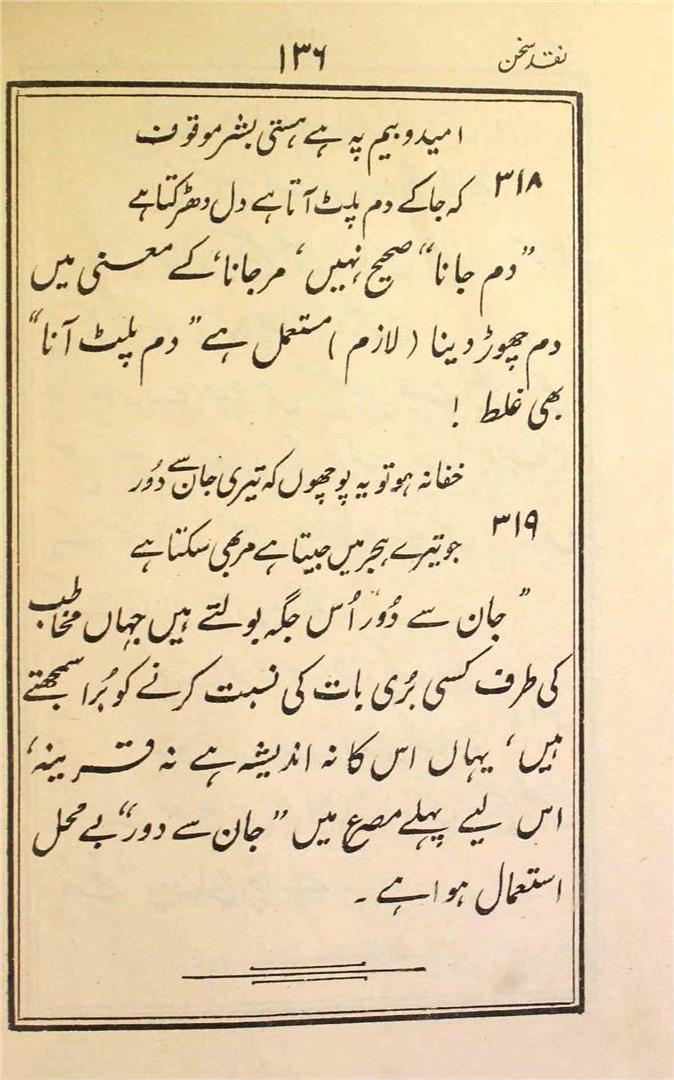 نقد سخن
۱۳۶
امید و بیم پہ ہے ہستی بشر موقوف
۳۱۸
کہ جا کے دم پلٹ آتا ہے دل دھڑکتا ہے
”دم جانا“ صحیح نہیں، مرجانا، کے معنی میں
دم چھوڑ دینا (لازم) مستعمل ہے ”دم پلٹ آنا“
بھی غلط !
خفا نہ ہو تو یہ پوچھوں کہ تیری جان سے دُور
۳۱۹
جو تیرے ہجر میں جیتا ہے مر بھی سکتا ہے
”جان سے دُور“ اُس جگہ بولتے ہیں جہاں مخاطب
کی طرف کسی بُری بات کی نسبت کرنے کو بُرا سمجھتے
ہیں، یہاں اس کا نہ اندیشہ ہے نہ قرینہ،
اس لیے پہلے مصرع میں ”جان سے دور“ بے محل
استعمال ہوا ہے۔